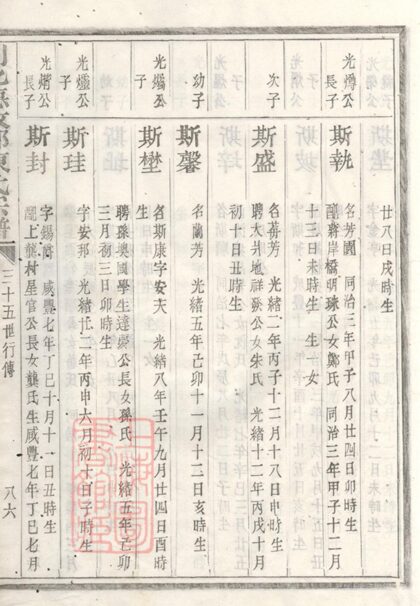 廿八日戌時生
光燽公
長子
斯執
名芳園 同治三年甲子八月廿四日卯時生
醮蔣岸橋明球公女鄭氏 同治三年甲子十二月
十三日未時生 生一女
次子
斯盛
名苺芳 光緒二年丙子十二月十八日申時生
聘大井地祥 公女朱氏 光緒十二年丙戌十月
初十日丑時生
幼子
斯馨
名蘭芳 光緒五年己卯十一月十二日亥時生
光 公
子
斯埜
名斯康字安夫 光緒八年壬午九月廿四日酉時
生
聘孫奧國學生達夢公長女孫氏 光緒五年己卯
三月初三日卯時生
光爐公
子
斯珪
字安邦 光緒廿二年丙申六月初十日子時生
光焇公
長子
斯封
字錫 咸豐七年丁巳十月十一日丑時生
上龔村星官公長女龔氏生咸豐七年丁巳七月
東氏宗譜
三十五世行傳
八六